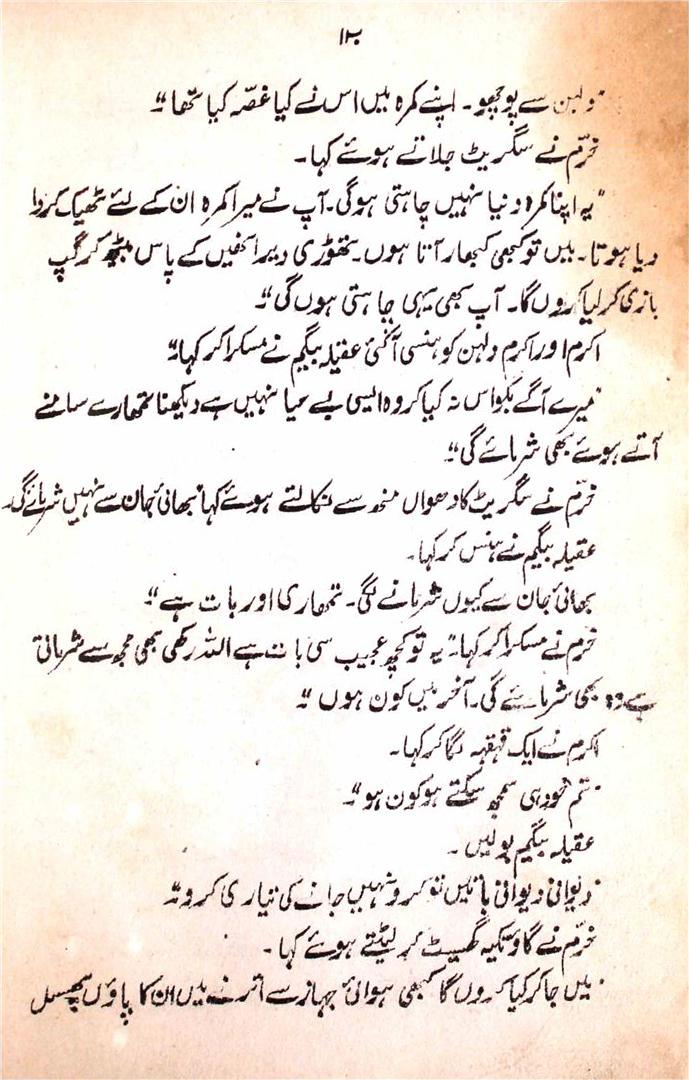 ۱۲
دلہن سے پوچھو۔ اپنے کمرہ میں اس نے کیا غصّہ کیا تھا"۔
خرّم نے سگریٹ جلاتے ہوئے کہا۔
"یہ اپنا کمرہ دنیا نہیں چاہتی ہوگی۔ آپ نے میرا کمرہ ان کے لئے ٹھیک کروا
دیا ہوتا۔ میں تو کبھی کبھار آتا ہوں۔ تھوڑی دیر انھیں کے پاس بیٹھ کر گپ
بازی کر لیا کروں گا۔ آپ بھی یہی چاہتی ہوں گی"۔
اکرم اور اکرم دلہن کو ہنسی آگئی عقیلہ بیگم نے مسکرا کر کہا"۔
"میرے آگے بکواس نہ کیا کرو وہ ایسی بے حیا نہیں ہے دیکھنا تمھارے سامنے
آتے ہوئے بھی شرمائے گی"۔
خرّم نے سگریٹ کا دھواں منھ سے نکالتے ہوئے کہا "بھائی جان سے نہیں شرمائے گی۔
عقیلہ بیگم نے ہنس کر کہا۔
بھائی جان سے کیوں شرمانے لگی۔ تمھاری اور بات ہے"۔
خرّم نے مسکرا کر کہا۔ "یہ تو کچھ عجیب سی بات ہے اللہ رکھی بھی مجھ سے شرماتی
ہے وہ بھی شرمائے گی۔ آخر میں کون ہوں"۔
اکرم نے ایک قہقہہ لگا کر کہا۔
"تم خود ہی سمجھ سکتے ہو کون ہو"۔
عقیلہ بیگم بولیں۔
"دیوانی دیوانی باتیں تو کرو نہیں جانے کی تیاری کرو"۔
خرّم نے گاؤ تکیہ گھسیٹ کر لیٹتے ہوئے کہا۔
"میں جا کر کیا کروں گا کبھی ہوائی جہاز سے اترنے میں ان کا پاؤں پھسل